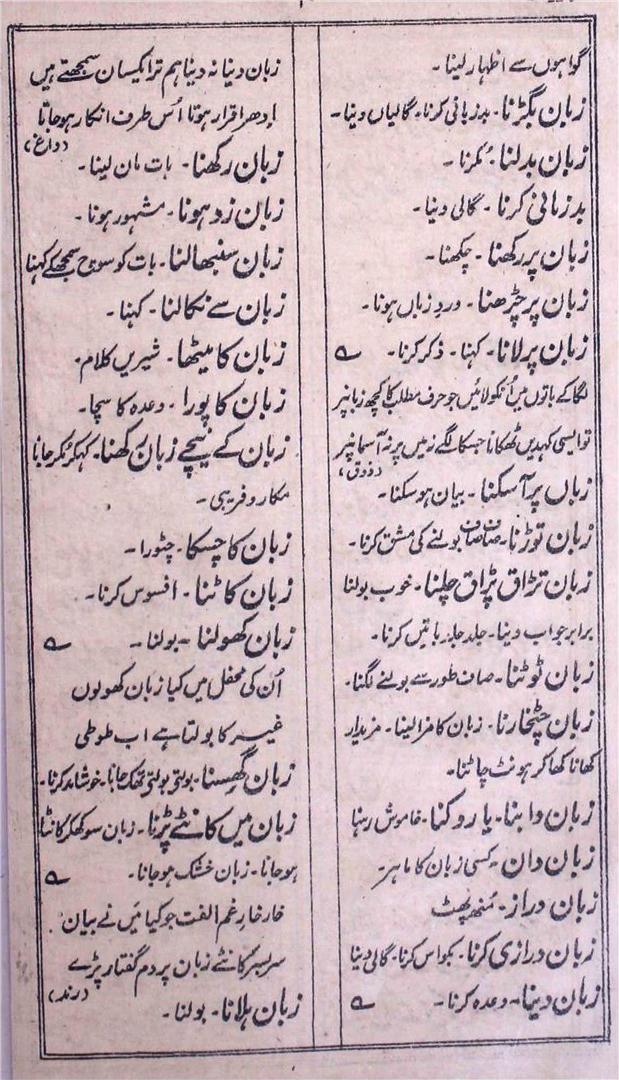 گواہوں سے اظہار لینا۔
زبان بگڑنا۔ بدزبانی کرنا۔ گالیاں دینا۔
زبان بدلنا۔ مُکرنا۔
بدزبانی کرنا۔ گالی دینا۔
زبان پر رکھنا۔ چکھنا۔
زبان پر چڑھنا۔ وردِ زباں ہونا۔
زبان پر لانا۔ کہنا۔ ذکر کرنا۔ ؎
لگا کے باتوں میں اُنکو لائیں جو حرف مطلب کا کچھ زبانپر
تو ایسی کہدیں ٹھکانا جسکا لگے زمیں پر نہ آسمانپر
(ذوق)
زباں پر آسکنا۔ بیان ہو سکنا۔
زبان توڑنا۔ صاف صاف بولنے کی مشق کرنا۔
زبان تڑاق پڑاق چلنا۔ خوب بولنا
برابر جواب دینا۔ جلد جلد باتیں کرنا۔
زبان ٹوٹنا۔ صاف طور سے بولنے لگنا۔
زبان چٹخارنا۔ زبان کا مزا لینا۔ مزیدار
کھانا کھا کر ہونٹ چاٹنا۔
زبان دابنا۔ یا روکنا۔ خاموش رہنا
زبان دان۔ کسی زبان کا ماہر۔
زبان دراز۔ مُنھ پھٹ
زبان درازی کرنا۔ بکواس کرنا۔ گالی دینا
زبان دینا۔ وعدہ کرنا۔ ؎
زبان دینا نہ دینا ہم ترا یکسان سمجھتے ہیں
اِدھر اقرار ہوتا اُس طرف انکار ہوجاتا
(داغ)
زبان رکھنا۔ بات مان لینا۔
زبان زد ہونا۔ مشہور ہونا۔
زبان سنبھالنا۔ بات کو سوچ سمجھکے کہنا
زبان سے نکالنا۔ کہنا۔
زبان کا میٹھا۔ شیریں کلام۔
زبان کا پورا۔ وعدہ کا سچا۔
زبان کے نیچے زبان رکھنا۔ کہکر مُکر جانا
مکار و فریبی۔
زبان کا چسکا۔ چٹورا۔
زبان کاٹنا۔ افسوس کرنا۔
زبان کھولنا۔ بولنا۔ ؎
اُن کی محفل میں کیا زبان کھولوں
غیر کا بولتا ہے اب طوطی
زبان گھِسنا۔ بولتی بولتی تھک جانا۔ خوشامد کرنا۔
زبان میں کانٹے پڑنا۔ زبان سوکھکر کانٹا
ہو جانا۔ زبان خشک ہوجانا۔ ؎
خار خارِ غم الفت جو کیا میں نے بیان
سربسر کانٹے زبان پر دم گفتار پڑے
(رند)
زبان ہلانا۔ بولنا۔